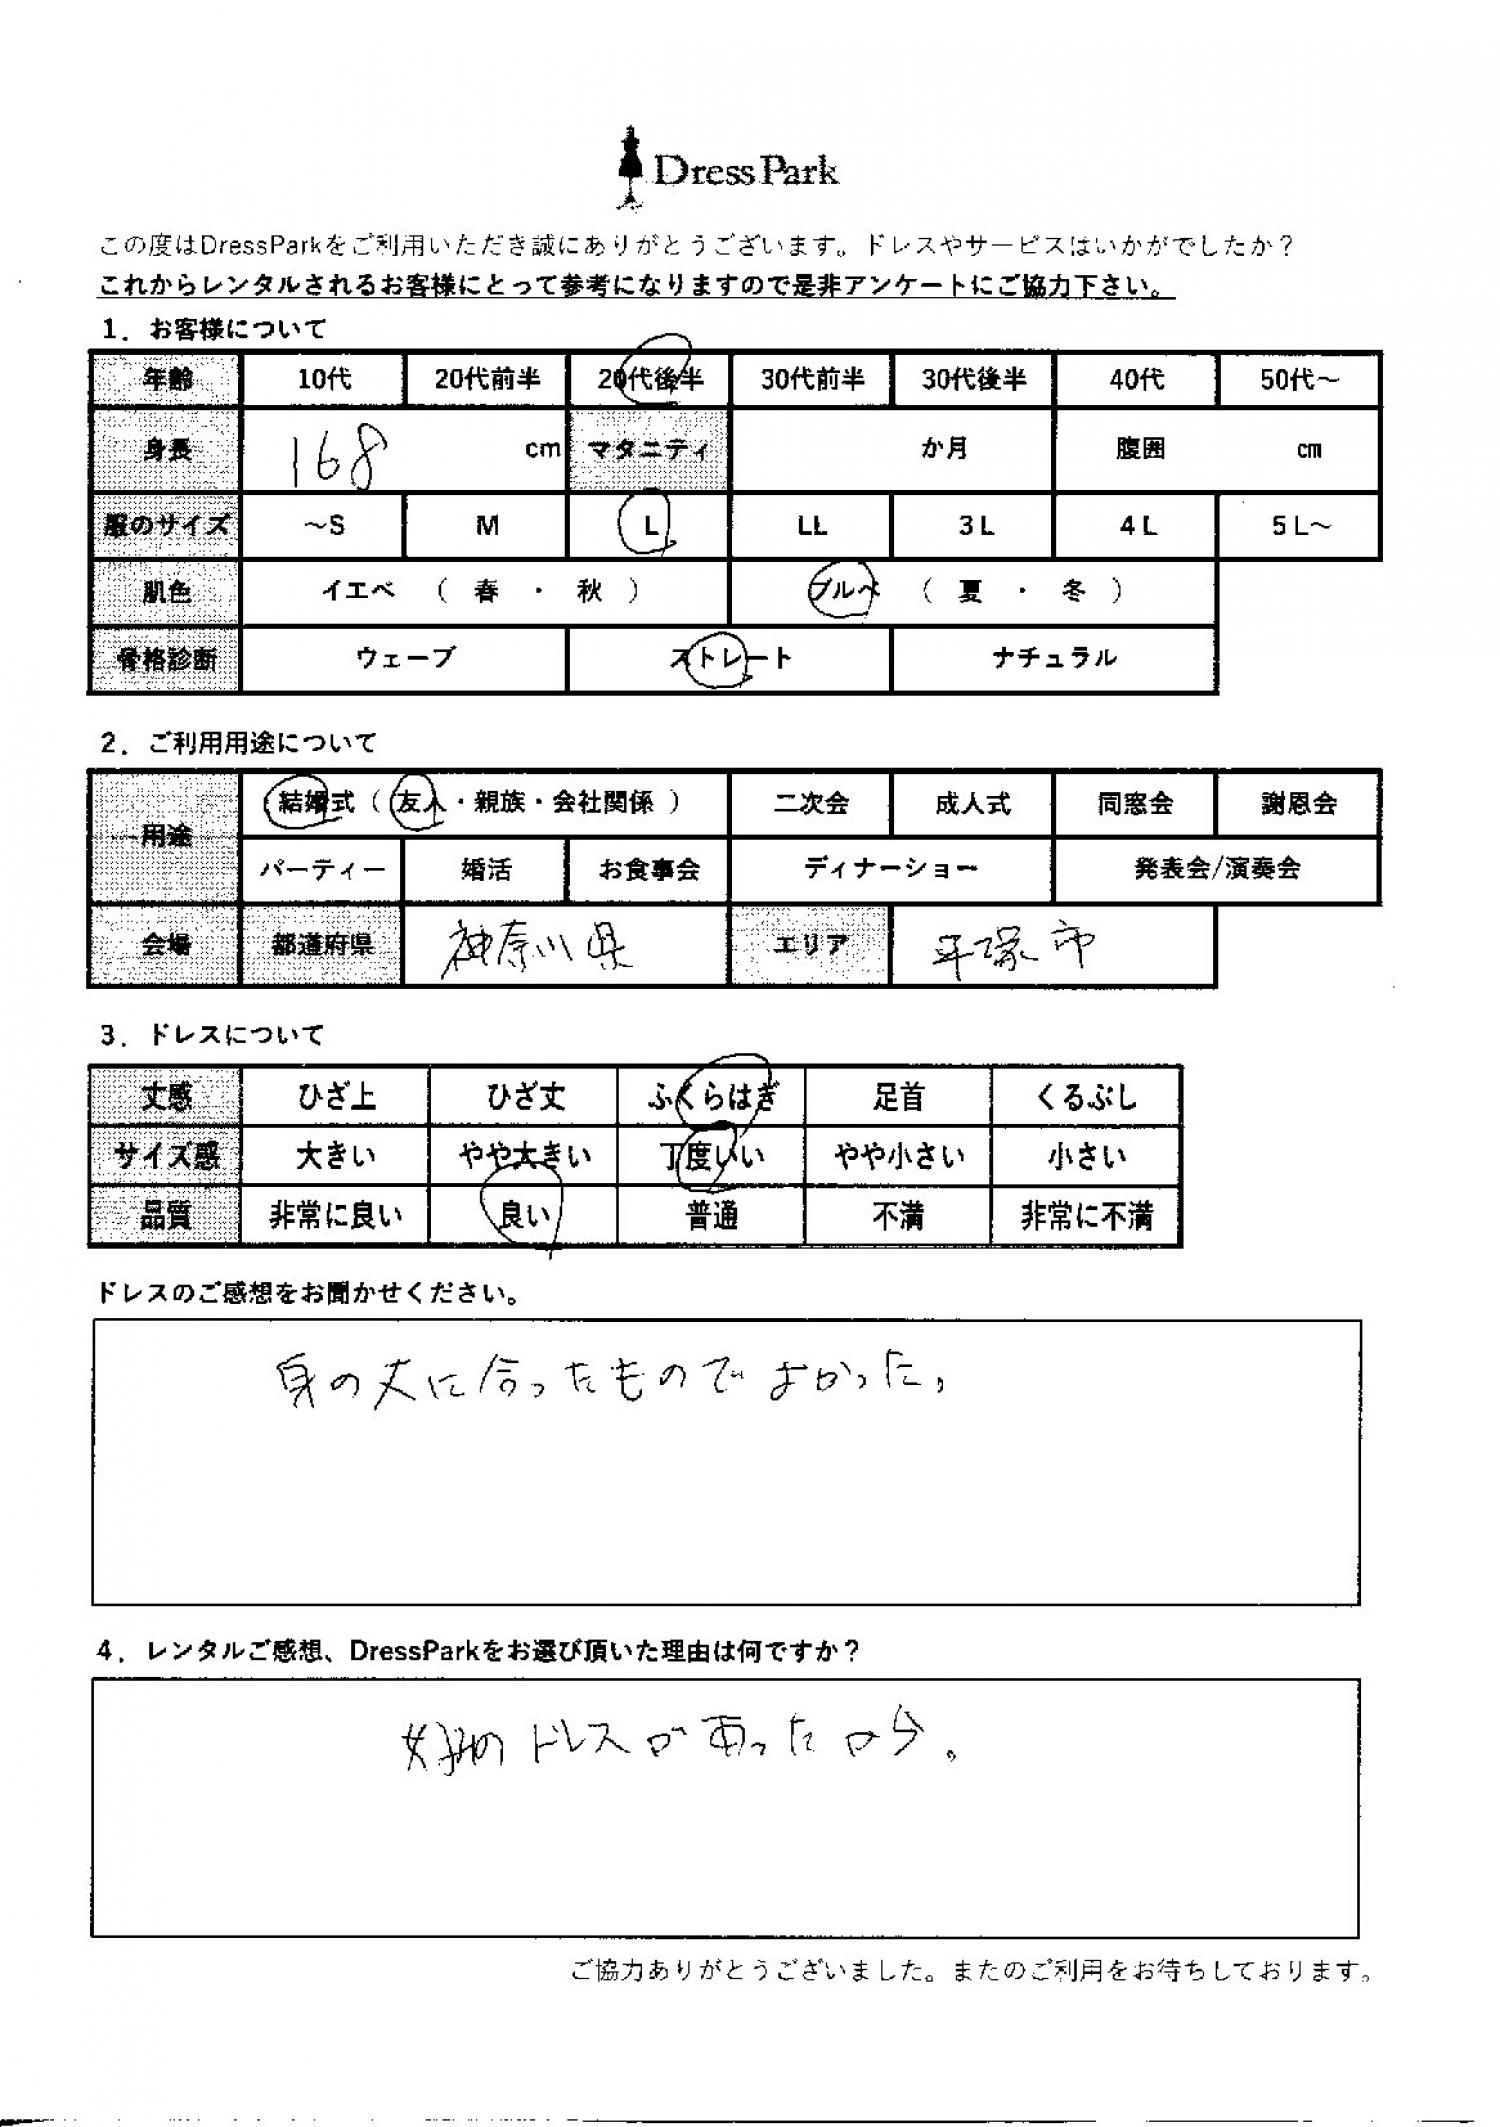 DressPark
この度はDressParkをご利用いただき誠にありがとうございます。ドレスやサービスはいかがでしたか？
これからレンタルされるお客様にとって参考になりますので是非アンケートにご協力下さい。
1．お客様について
年齢 10代 20代前半 20代後半 30代前半 30代後半 40代 50代～
身長 168 cm マタニティ か月 腹囲 cm
服のサイズ ～S M L LL 3L 4L 5L～
肌色 イエベ （ 春 ・ 秋 ） ブルベ （ 夏 ・ 冬 ）
骨格診断 ウェーブ ストレート ナチュラル
2．ご利用用途について
用途 結婚式（ 友人・親族・会社関係 ） 二次会 成人式 同窓会 謝恩会
パーティー 婚活 お食事会 ディナーショー 発表会/演奏会
会場 都道府県 神奈川県 エリア 平塚市
3．ドレスについて
丈感 ひざ上 ひざ丈 ふくらはぎ 足首 くるぶし
サイズ感 大きい やや大きい 丁度いい やや小さい 小さい
品質 非常に良い 良い 普通 不満 非常に不満
ドレスのご感想をお聞かせください。
身の丈に合ったものでよかった。
4．レンタルご感想、DressParkをお選び頂いた理由は何ですか？
好みのドレスがあったから。
ご協力ありがとうございました。またのご利用をお待ちしております。